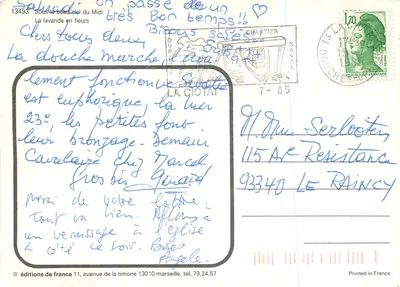 13493 Sous le beau ciel du Midi
La lavande en fleurs
on passe de un
très bon temps!!
Bisous salés
Chers tous deux,
La douche marche
CHANTIER
NAVAL
LA CIOTAT
7-85
1,70
lement fonctionne
est euphorique, la mer
23°, les petites font
leur bronzage. Demain
Cavalaire chez Marcel
gros bis Gérard
Merci de votre lettre.
Tout va bien. Allons à
un vernissage à l'église
à côté ce soir. Bises
Angèle
M. Mme Serlooten
115 Av Resistance
93340 LE RAINCY
© éditions de france 11, avenue de la timone 13010 marseille, tél. 79.24.57
Printed in France